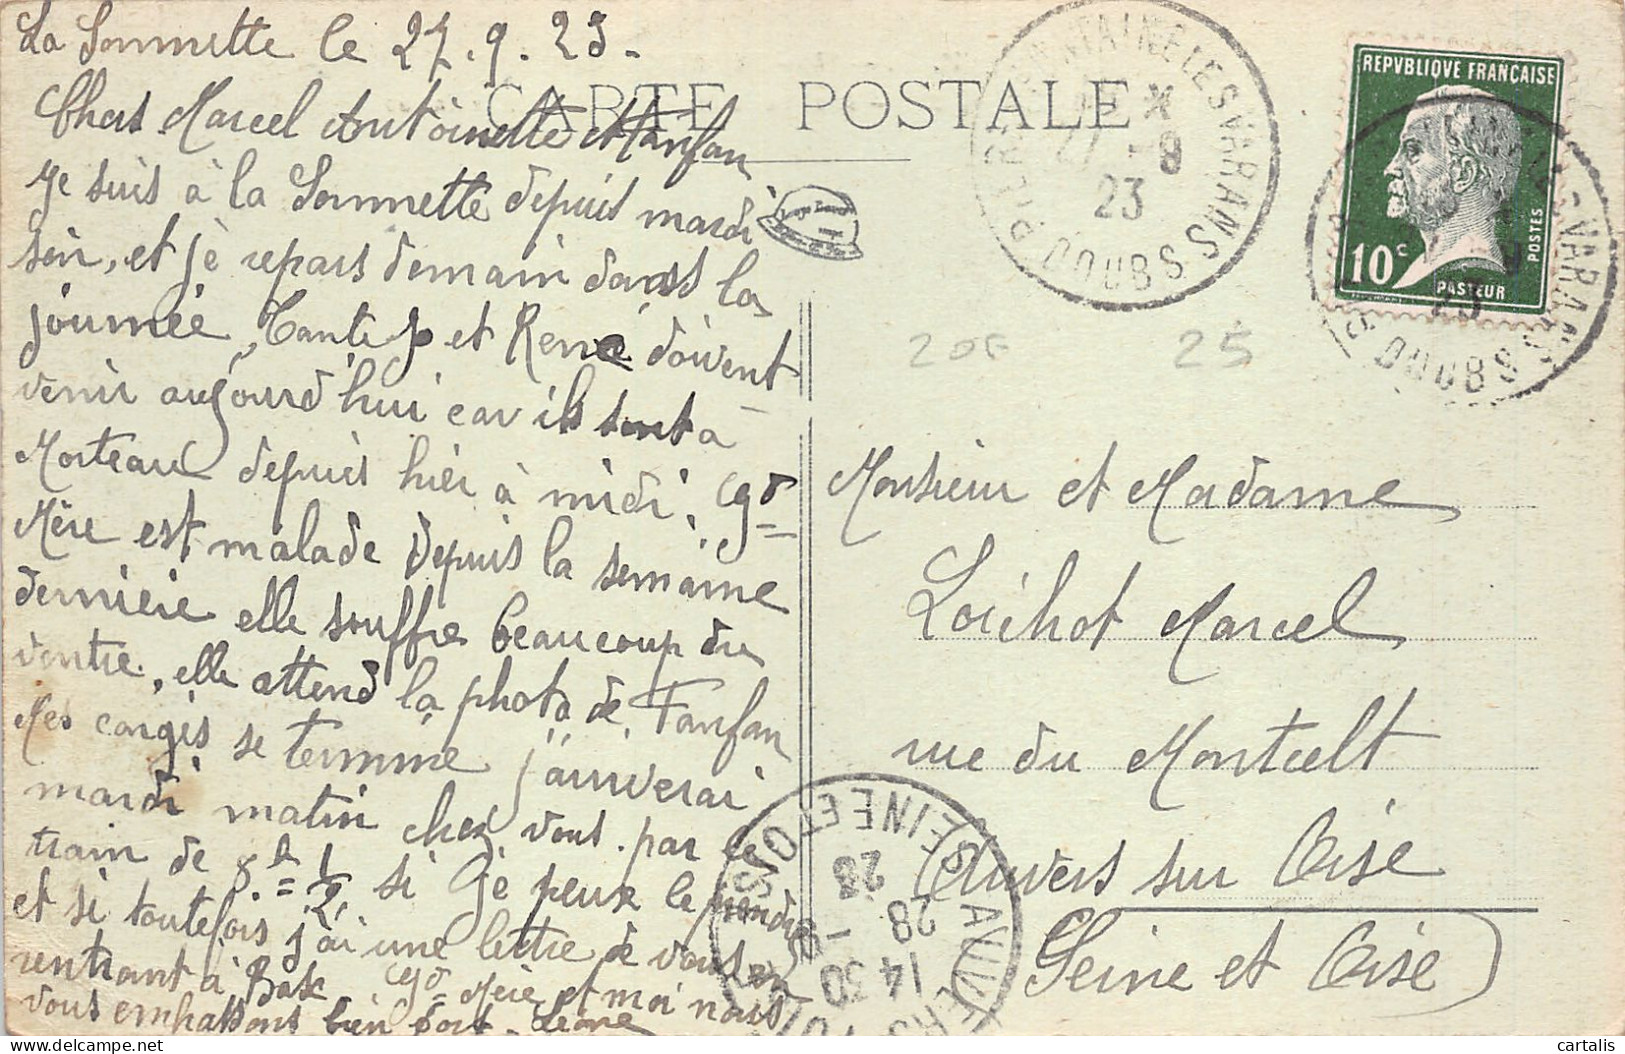 La Sommette le 27.9.23.
CARTE POSTALE
Chers Marcel Antoinette et Fanfan
Je suis à la Sommette depuis mardi
soir, et je repars demain dans la
journée, Tante J et René doivent
venir aujourd'hui car ils sont à
Morteau depuis hier à midi. Gd
Mère est malade depuis la semaine
dernière elle souffre beaucoup du
ventre, elle attend la photo de Fanfan
Mes congés se termine j'arriverai
mardi matin chez vous par le
train de 8.h 1/2 si je peux le prendre
et si toutefois j'ai une lettre de vous en
rentrant à Gd Mère et moi nous
vous embrassons bien fort. Léone
REPVBLIQVE FRANÇAISE
10c
POSTES
PASTEUR
PIERREFONTAINE LES VARANS
27 - 9
23
DOUBS
VARANS
DOUBS
20F
25
Monsieur et Madame
Lorihot Marcel
rue du Montcelt
(Auvers sur Oise
Seine et Oise)
AUVERS
SEINE ET OISE
14 30
28 - 9
23
cartalis
delcampe.net